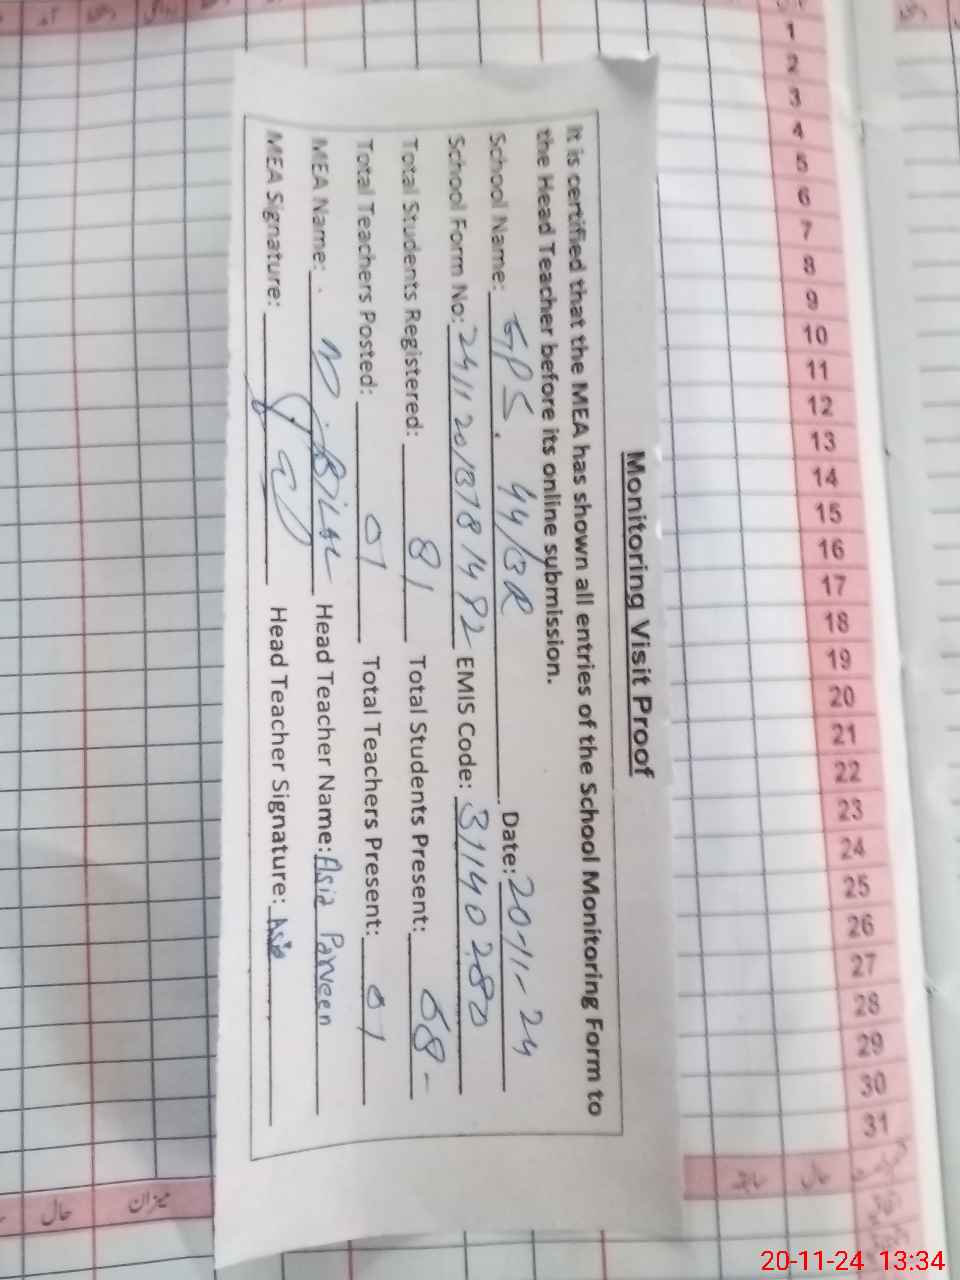 Monitoring Visit Proof
It is certified that the MEA has shown all entries of the School Monitoring Form to
the Head Teacher before its online submission.
School Name: GPS. 44/3R Date: 20-11-24
School Form No: EMIS Code: 31140280
Total Students Registered: 81 Total Students Present: 68-
Total Teachers Posted: 01 Total Teachers Present: 01
MEA Name: M. Bilal Head Teacher Name: Asia Parveen
MEA Signature: Head Teacher Signature: Asia
1
2
3
4
5
6
7
8
9
10
11
12
13
14
15
16
17
18
19
20
21
22
23
24
25
26
27
28
29
30
31
حال
سابقہ
میزان
حال
20-11-24 13:34